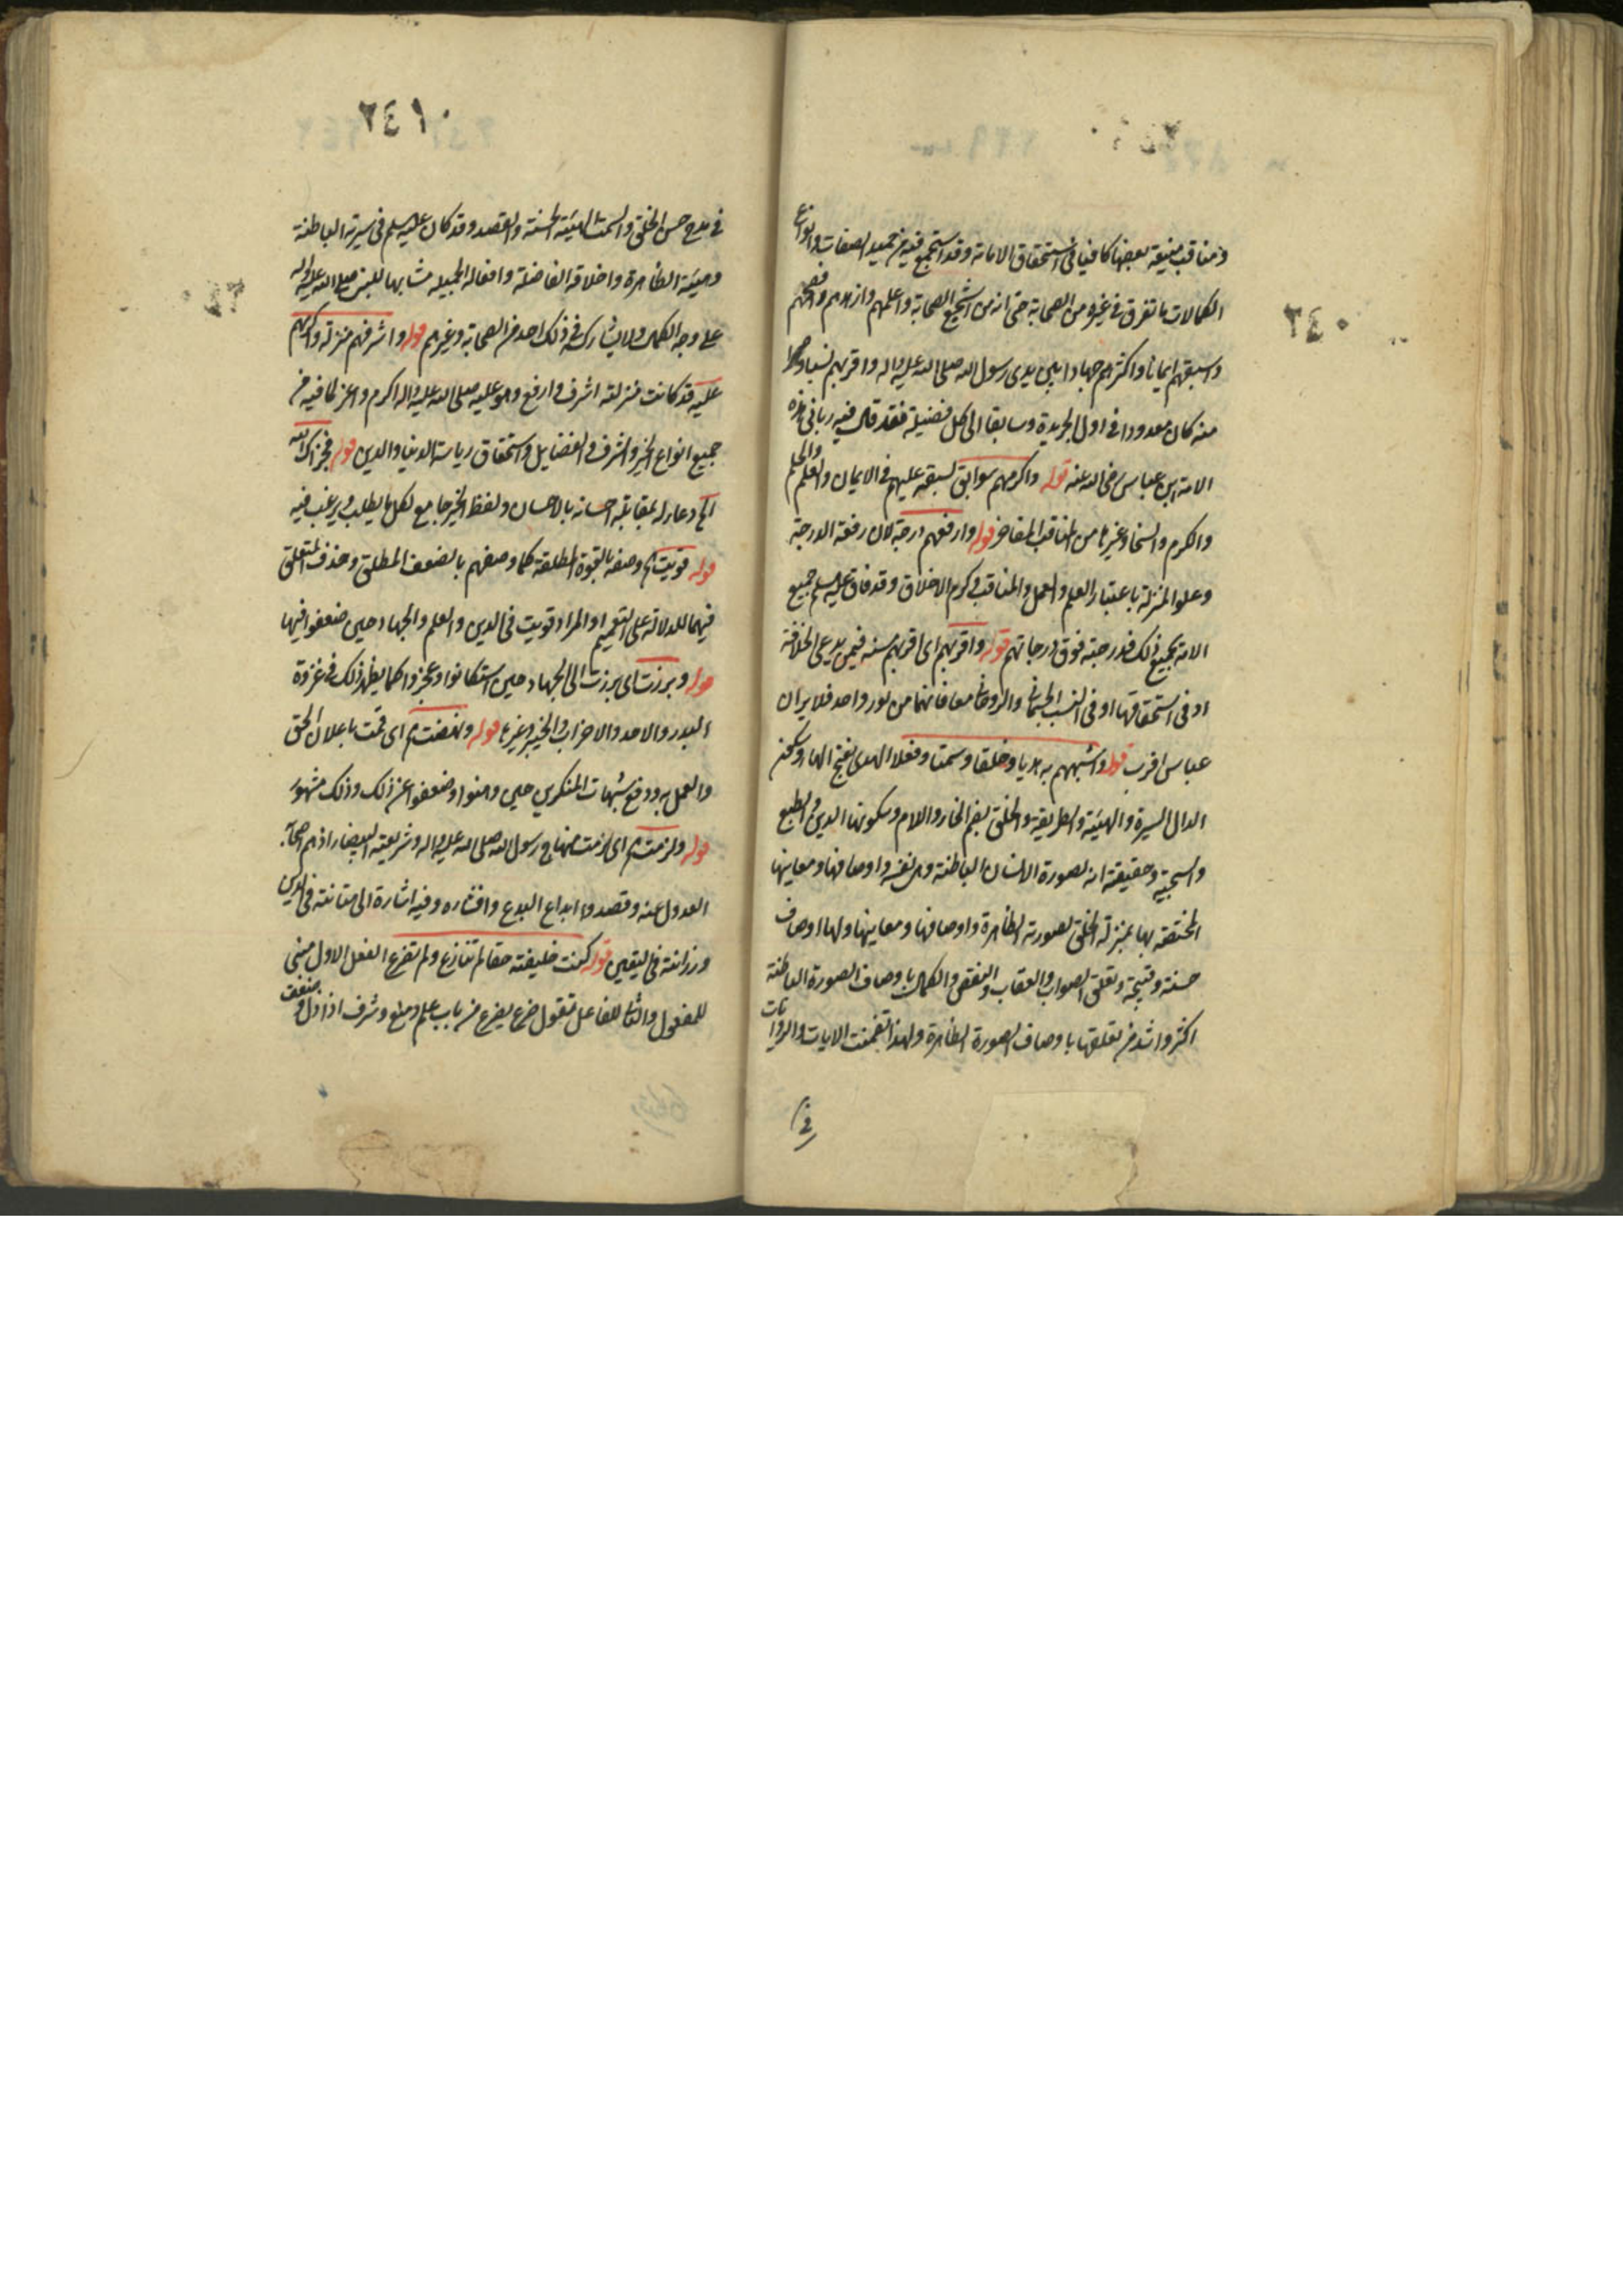 ومناقب منيفة بعضها كافيا في استحقاق الامامة وقد استجمع فيه من حميد الصفات وانواع
الكمالات ما تفرق في غيره من الصحابة حتى انه من اشجع الصحابة واعلمهم وازهدهم وافصحهم
واسبقهم ايمانا واكثرهم جهادا بين يدى رسول الله صلى الله عليه واله واقربهم نسبا وصهرا
منه كان معدودا في اول الجريدة وسابقا الى كل فضيلة فقد قال فيه ربانى هذه
الامة ابن عباس رضى الله عنه قوله واكرمهم سوابق لسبقه عليهم في الايمان والعلم والحلم
والكرم والسخاء وغيرها من المناقب والمفاخر قوله وارفعهم درجة لان رفعة الدرجة
وعلو المنزلة باعتبار العلم والعمل والمناقب وكرم الاخلاق وقد فاق عليه السلم جميع
الامة بجميع ذلك فدرجته فوق درجاتهم قوله واقربهم اى اقربهم منه فيمن يدعى الخلافة
او في استحقاقها او في النسب الجسمانى والروحانى معا فانهما من نور واحد فلا يرد ان
عباس اقرب قوله واشبههم به هديا وخلقا وسمتا وفعلا الهدى بفتح الهاء وسكون
الدال السيرة والهيئة والطريقة والخلق بضم الخاء واللام وسكونها الدين والطبع
والسجية وحقيقته انه لصورة الانسان الباطنة وهى نفسه واوصافها ومعانيها
المختصة بها بمنزلة الخلق لصورته الظاهرة واوصافها ومعانيها ولها اوصاف
حسنة وقبيحة وتعلق الصواب والعقاب والنقص والكمال باوصاف الصورة الباطنة
اكثر واشد من تعلقها باوصاف الصورة الظاهرة ولهذا تضمنت الايات والروايات
في
٢٤٠
٢٤١
في مدح حسن الخلق والسمت الهيئة الحسنة والقصد وقد كان عليه السلم في سيرته الباطنة
وهيئة الظاهرة واخلاقه الفاضلة وافعاله الجميلة مشابها للنبى صلى الله عليه واله
على وجه الكمال ولا يشاركه في ذلك احد من الصحابة وغيرهم قوله واشرفهم منزلة واكرمهم
عليه قد كانت منزلته اشرف وارفع وهو عليه صلى الله عليه واله اكرم واعز لما فيه من
جميع انواع الخير والشرف والفضايل واستحقاق رياسة الدنيا والدين قوله فجزاك الله
اه دعاء له بمقابلة احسانه بالاحسان ولفظ الخير جامع لكل ما يطلب ويرغب فيه
قوله قويت اه وصفه بالقوة المطلقة كما وصفهم بالضعف المطلق وحذف المتعلق
فيهما للدلالة على التعميم او المراد قويت في الدين والعلم والجهاد حين ضعفوا فيها
قوله وبرزت اى برزت الى الجهاد حين استكانوا وعجزوا كما يظهر ذلك في غزوة
البدر والاحد والاحزاب والخيبر وغيرها قوله ونهضت اه اى قمت باعلان الحق
والعمل به ودفع شبهات المنكرين حين وهنوا وضعفوا عن ذلك وذلك مشهور
قوله ولزمت اه اى لزمت منهاج رسول الله صلى الله عليه واله وشريعته البيضاء اذ هم اصحابه
العدول عنه وقصدوا ابداع البدع وافشاره وفيه اشارة الى متانته في الدين
ورزانته في اليقين قوله كنت خليفته حقا لم تنازع ولم تضرع الفعل الاول مبنى
للمفعول والثانى للفاعل تقول ضرع يضرع من باب علم ومنع وشرف اذا ذل وضعف